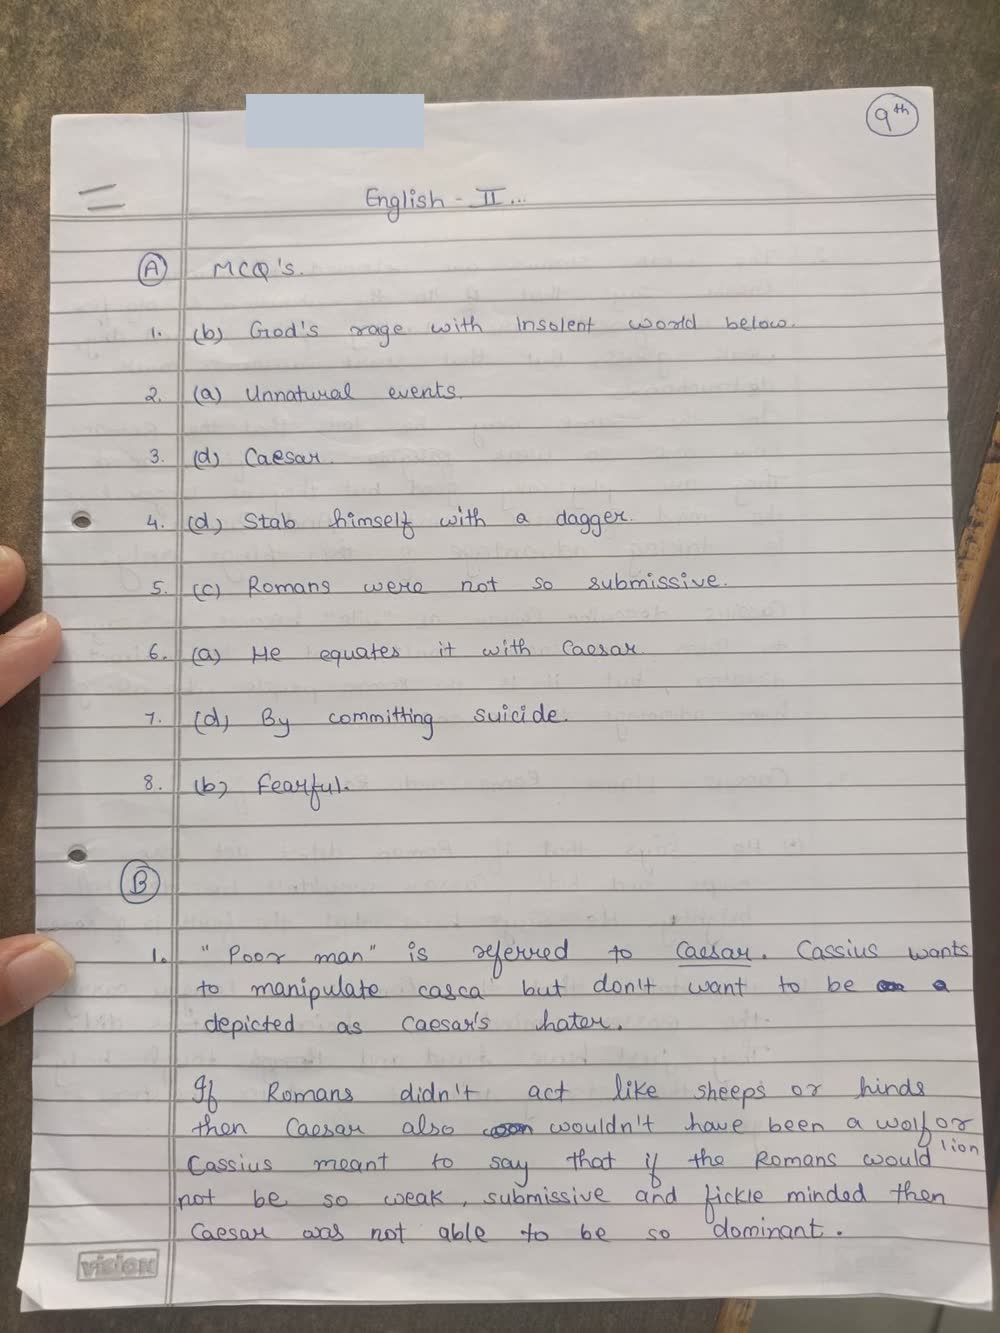 9th
English - II...
(A) MCQ's.
1. (b) God's rage with Insolent world below.
2. (a) Unnatural events.
3. (d) Caesar.
4. (d) Stab himself with a dagger.
5. (c) Romans were not so submissive.
6. (a) He equates it with Caesar
7. (d) By committing suicide.
8. (b) Fearful.
(B)
1. "Poor man" is referred to Caesar. Cassius wants
to manipulate casca but don't want to be a
depicted as Caesar's hater.
If Romans didn't act like sheeps or hinds
then Caesar also wouldn't have been a wolf or
lion
Cassius meant to say that if the Romans would
not be so weak, submissive and fickle minded then
Caesar was not able to be so dominant.
vision